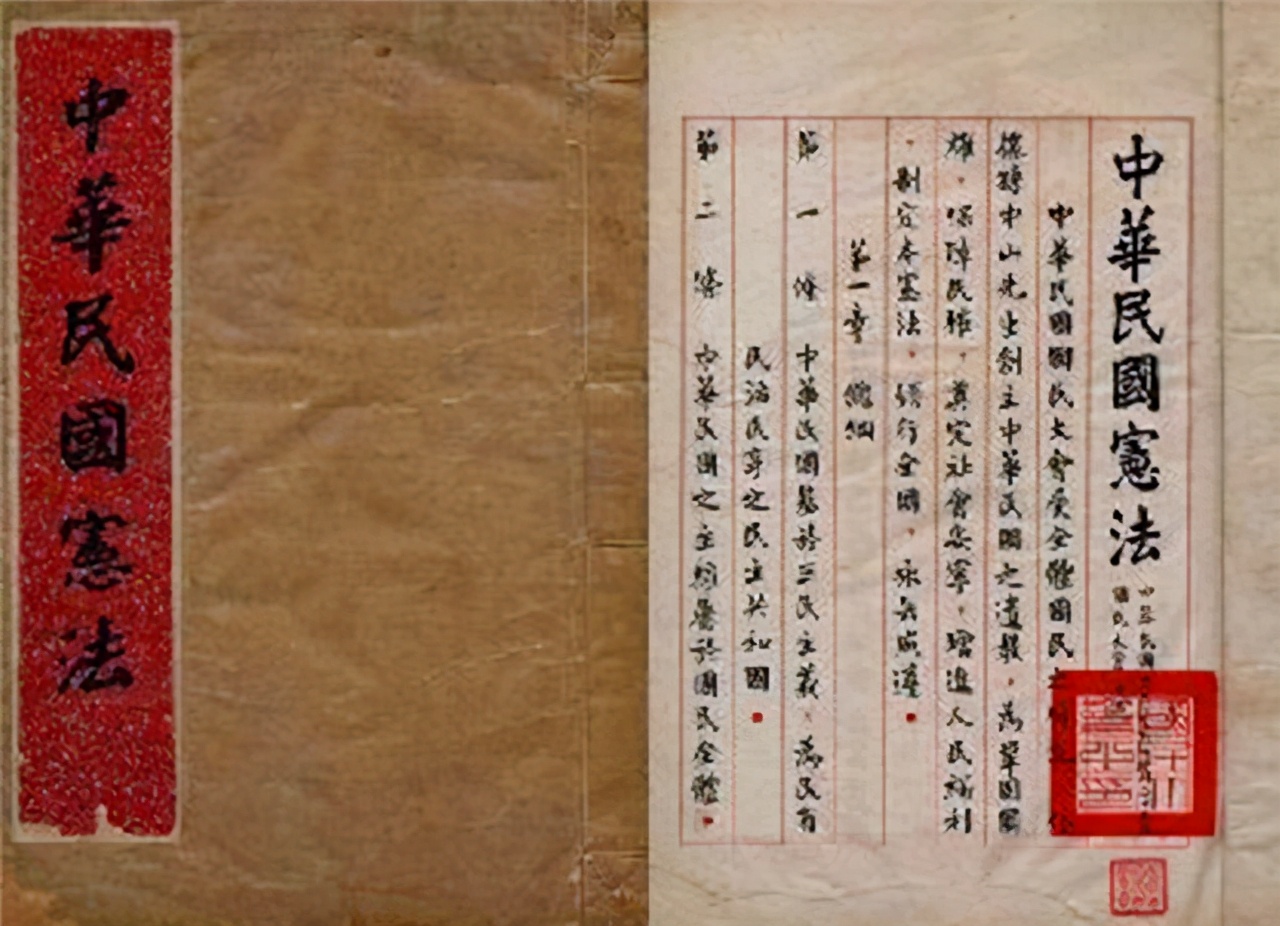 中華民國憲法
中華民國憲法
中華民國
國民大會
中華民國國民大會受全體國民之
據孫中山先生創立中華民國之遺教，為鞏固國
權，保障民權，奠定社會安寧，增進人民福利
，制定本憲法，頒行全國，永矢咸遵。
第一章 總綱
第一條 中華民國基於三民主義，為民有
民治民享之民主共和國。
第二條 中華民國之主權屬於國民全體。